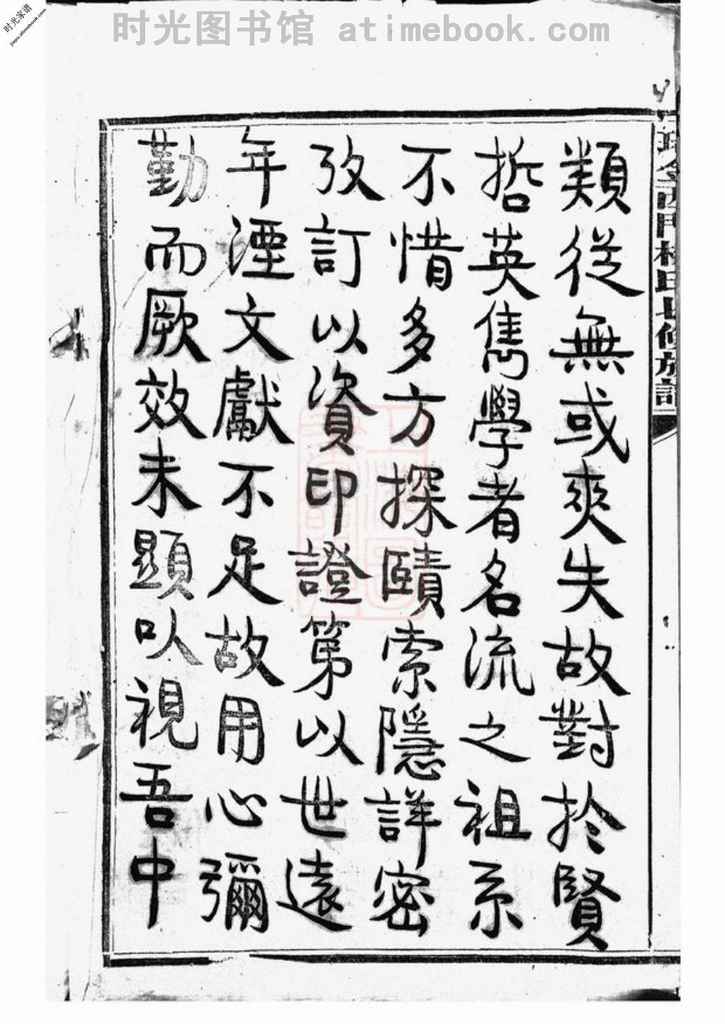 时光图书馆 atimebook.com
时光家谱
類從無或爽失故對於賢
哲英雋學者名流之祖系
不惜多方探賾索隱詳密
攷訂以資印證第以世遠
年湮文獻不足故用心彌
勤而厥效未顯以視吾中